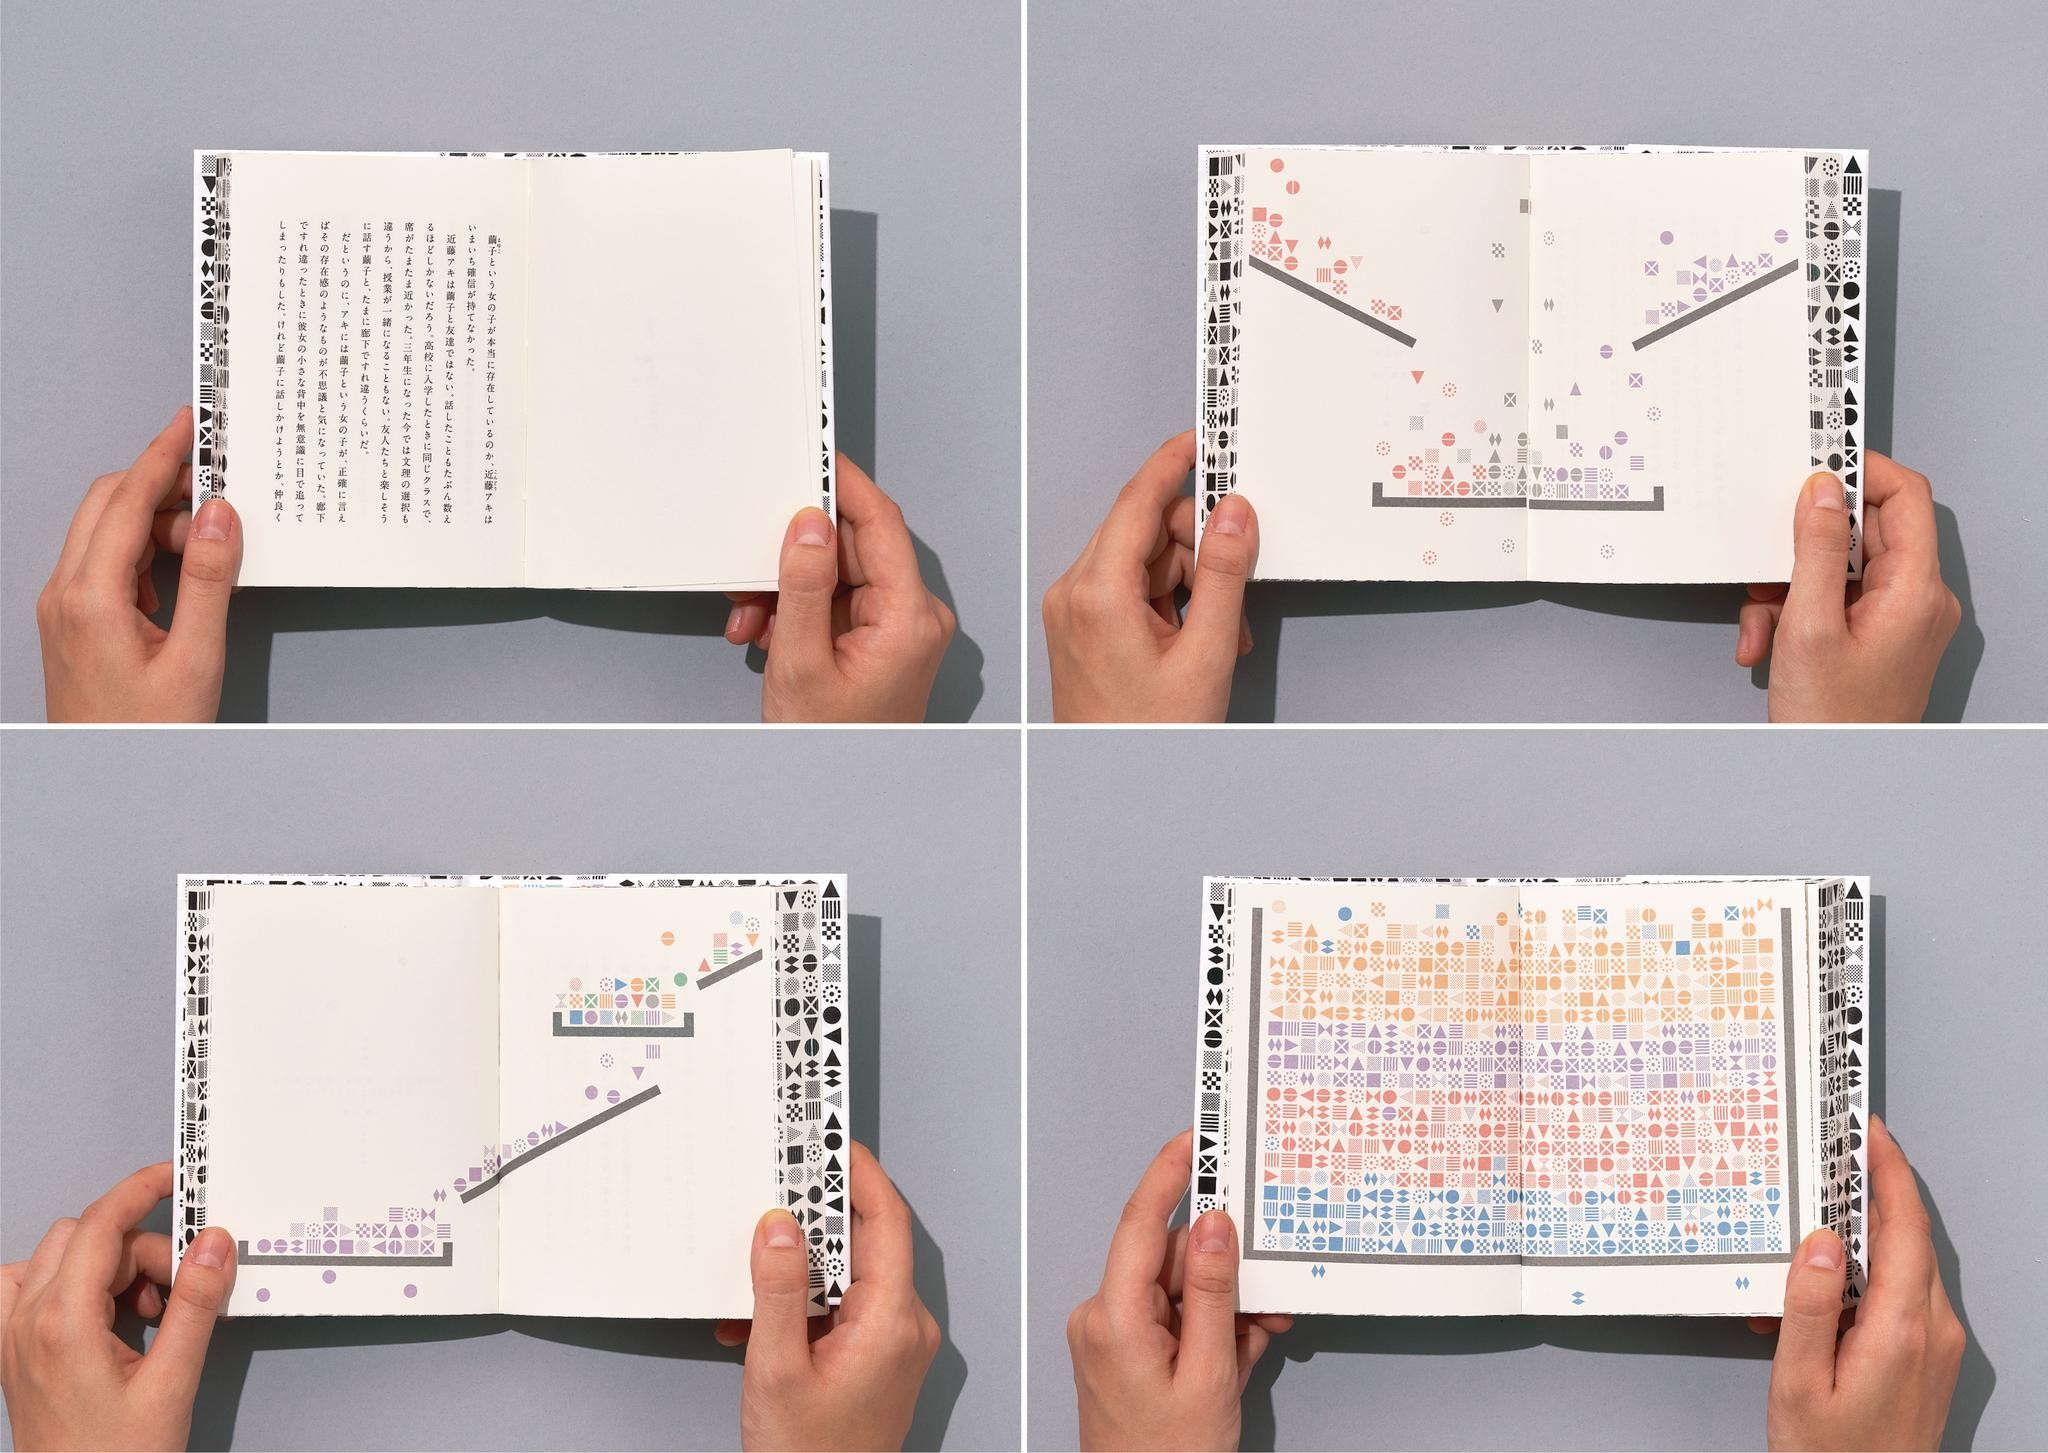 繭子という女の子が本当に存在しているのか、近藤アキは
いまいち確信が持てなかった。
近藤アキは繭子と友達ではない。話したこともたぶん数え
るほどしかないだろう。高校に入学したときに同じクラスで、
席がたまたま近かった。三年生になった今では文理の選択も
違うから、授業が一緒になることもない。友人たちと楽しそう
に話す繭子と、たまに廊下ですれ違うくらいだ。
だというのに、アキには繭子という女の子が、正確に言え
ばその存在感のようなものが不思議と気になっていた。廊下
ですれ違ったときに彼女の小さな背中を無意識に目で追って
しまったりもした。けれど繭子に話しかけようとか、仲良く